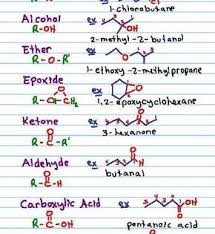 1-chlorobutane
Alcohol ex OH
R-OH
2-methyl-2-butanol
Ether ex O
R-O-R'
1-ethoxy-2-methylpropane
Epoxide ex O
O
R-CH-CH₂
1,2-epoxycyclohexane
Ketone ex O
O
R-C-R'
3-hexanone
Aldehyde ex O H
O
R-C-H
butanal
Carboxylic Acid ex O OH
O
R-C-OH
pentanoic acid